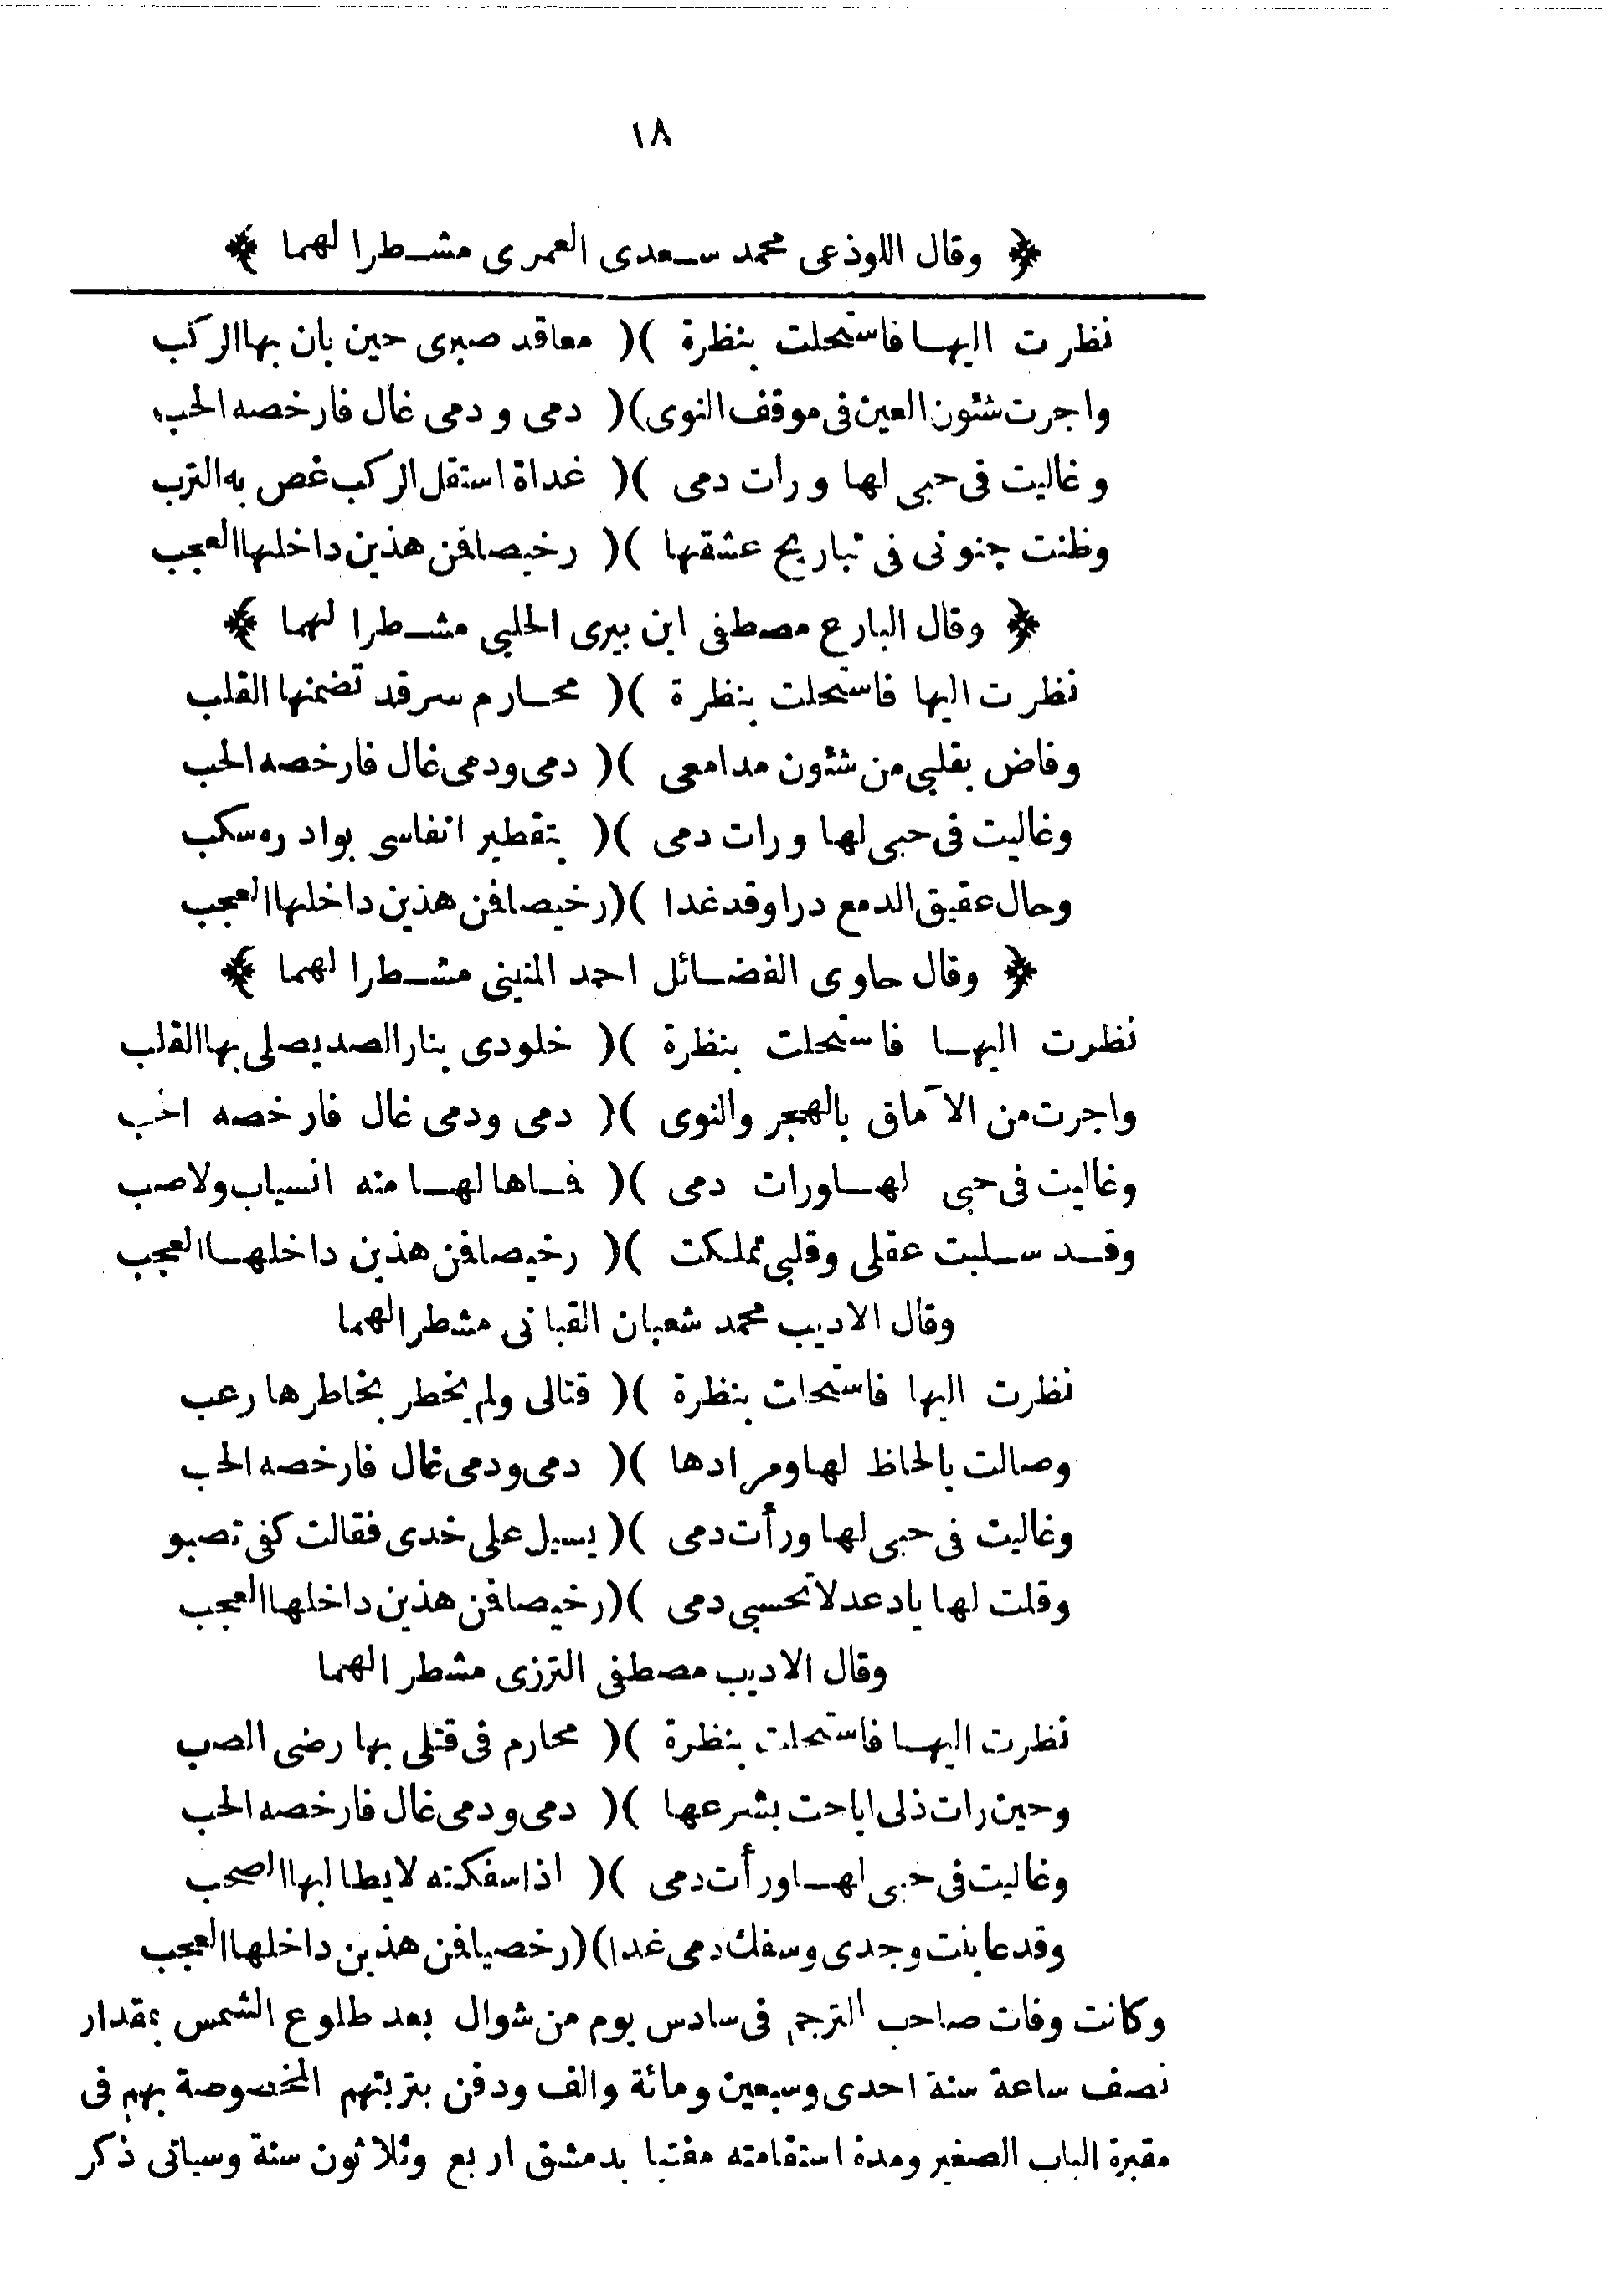 ١٨
﴿ وقال اللوذعى محمد سعدى العمرى مشطرا لهما ﴾
نظرت اليها فاستحلت بنظرة )( معاقد صبرى حين بان بها الركب
واجرت شئون العين فى موقف النوى )( دمى ودمى غال فارخصه الحب
وغاليت فى حبى لها ورات دمى )( غداة استقل الركب غص به الترب
وظنت جنونى فى تباريح عشقها )( رخيصا فمن هذين داخلها العجب
﴿ وقال البارع مصطفى ابن بيرى الحلبى مشطرا لهما ﴾
نظرت اليها فاستحلت بنظرة )( محارم سر قد تضمنها القلب
وفاض بقلبى من شئون مدامعى )( دمى ودمى غال فارخصه الحب
وغاليت فى حبى لها ورات دمى )( بتقطير انفاسى بوادره سكب
وحال عقيق الدمع درا وقد غدا )( رخيصا فمن هذين داخلها العجب
﴿ وقال حاوى الفضائل احمد المنينى مشطرا لهما ﴾
نظرت اليها فاستحلت بنظرة )( خلودى بنار الصد يصلى بها القلب
واجرت من الآماق بالهجر والنوى )( دمى ودمى غال فارخصه الحب
وغاليت فى حبى لها ورات دمى )( فاها لها منه انسياب ولا صب
وقد سلبت عقلى وقلبى تملكت )( رخيصا فمن هذين داخلها العجب
وقال الاديب محمد شعبان القبانى مشطرا لهما
نظرت اليها فاستحلت بنظرة )( قتالى ولم يخطر بخاطرها رعب
وصالت بالحاظ لها ومرادها )( دمى ودمى غال فارخصه الحب
وغاليت فى حبى لها ورأت دمى )( يسيل على خدى فقالت كفى تصبو
وقلت لها يا دعد لا تحسبى دمى )( رخيصا فمن هذين داخلها العجب
وقال الاديب مصطفى الترزى مشطرا لهما
نظرت اليها فاستحلت بنظرة )( محارم فى قتلى بها رضى الصب
وحين رات ذلى اباحت بشرعها )( دمى ودمى غال فارخصه الحب
وغاليت فى حبى لها ورأت دمى )( اذا سفكته لا يطالبها الصحب
وقد عاينت وجدى وسفك دمى غدا )( رخصيا فمن هذين داخلها العجب
وكانت وفات صاحب الترجم فى سادس يوم من شوال بعد طلوع الشمس بمقدار
نصف ساعة سنة احدى وسبعين ومائة والف ودفن بتربتهم المخصوصة بهم فى
مقبرة الباب الصغير ومدة استقامته مفتيا بدمشق اربع وثلاثون سنة وسياتى ذكر